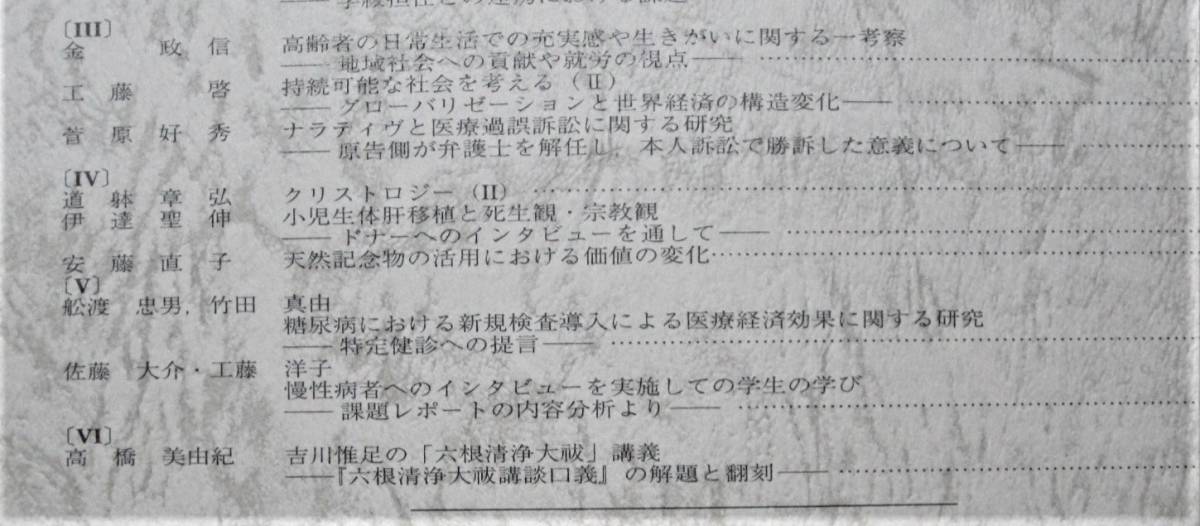 ―― 学校担任との連携における課題
〔III〕
金 政 信 高齢者の日常生活での充実感や生きがいに関する一考察
―― 地域社会への貢献や就労の視点 ―― ……
工 藤 啓 持続可能な社会を考える（II）
―― グローバリゼーションと世界経済の構造変化 ―― ……
菅 原 好 秀 ナラティヴと医療過誤訴訟に関する研究
―― 原告側が弁護士を解任し，本人訴訟で勝訴した意義について ―― ……
〔IV〕
道 躰 章 弘 クリストロジー（II） ……
伊 達 聖 伸 小児生体肝移植と死生観・宗教観
―― ドナーへのインタビューを通して ―― ……
安 藤 直 子 天然記念物の活用における価値の変化……
〔V〕
舩渡 忠男，竹田 真由
糖尿病における新規検査導入による医療経済効果に関する研究
―― 特定健診への提言 ―― ……
佐藤 大介・工藤 洋子
慢性病者へのインタビューを実施しての学生の学び
―― 課題レポートの内容分析より ―― ……
〔VI〕
高 橋 美由紀 吉川惟足の「六根清浄大祓」講義
――『六根清浄大祓講談口義』の解題と翻刻 ―― ……